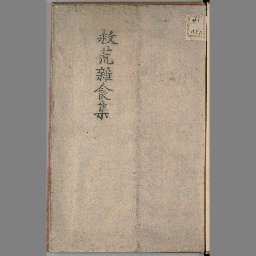 救荒雜食集